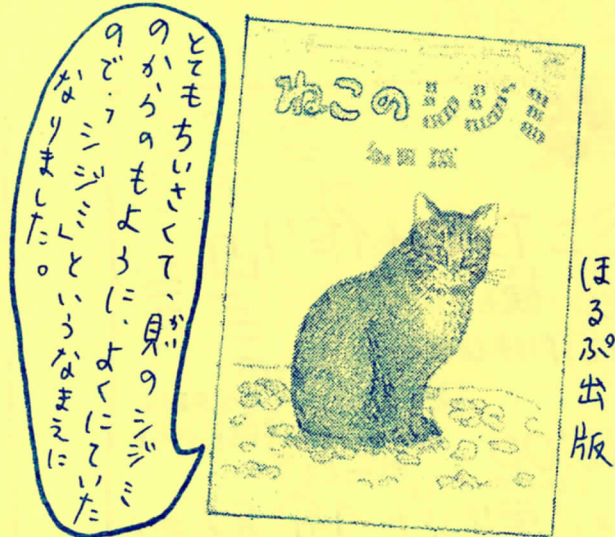 ほるぷ出版
ねこのシジミ
とてもちいさくて、貝のシジミ
かい
のからのもように、よくにていた
ので、「シジミ」というなまえに
なりました。